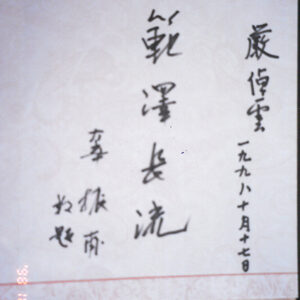 嚴倬雲
一九九八十月十七日
範澤長流
辜振甫
敬題